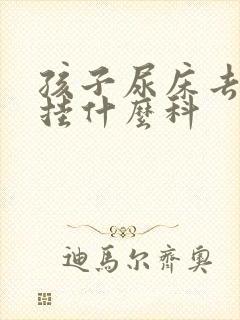 孩子尿床去
挂什麽科
迪馬尔齊奥